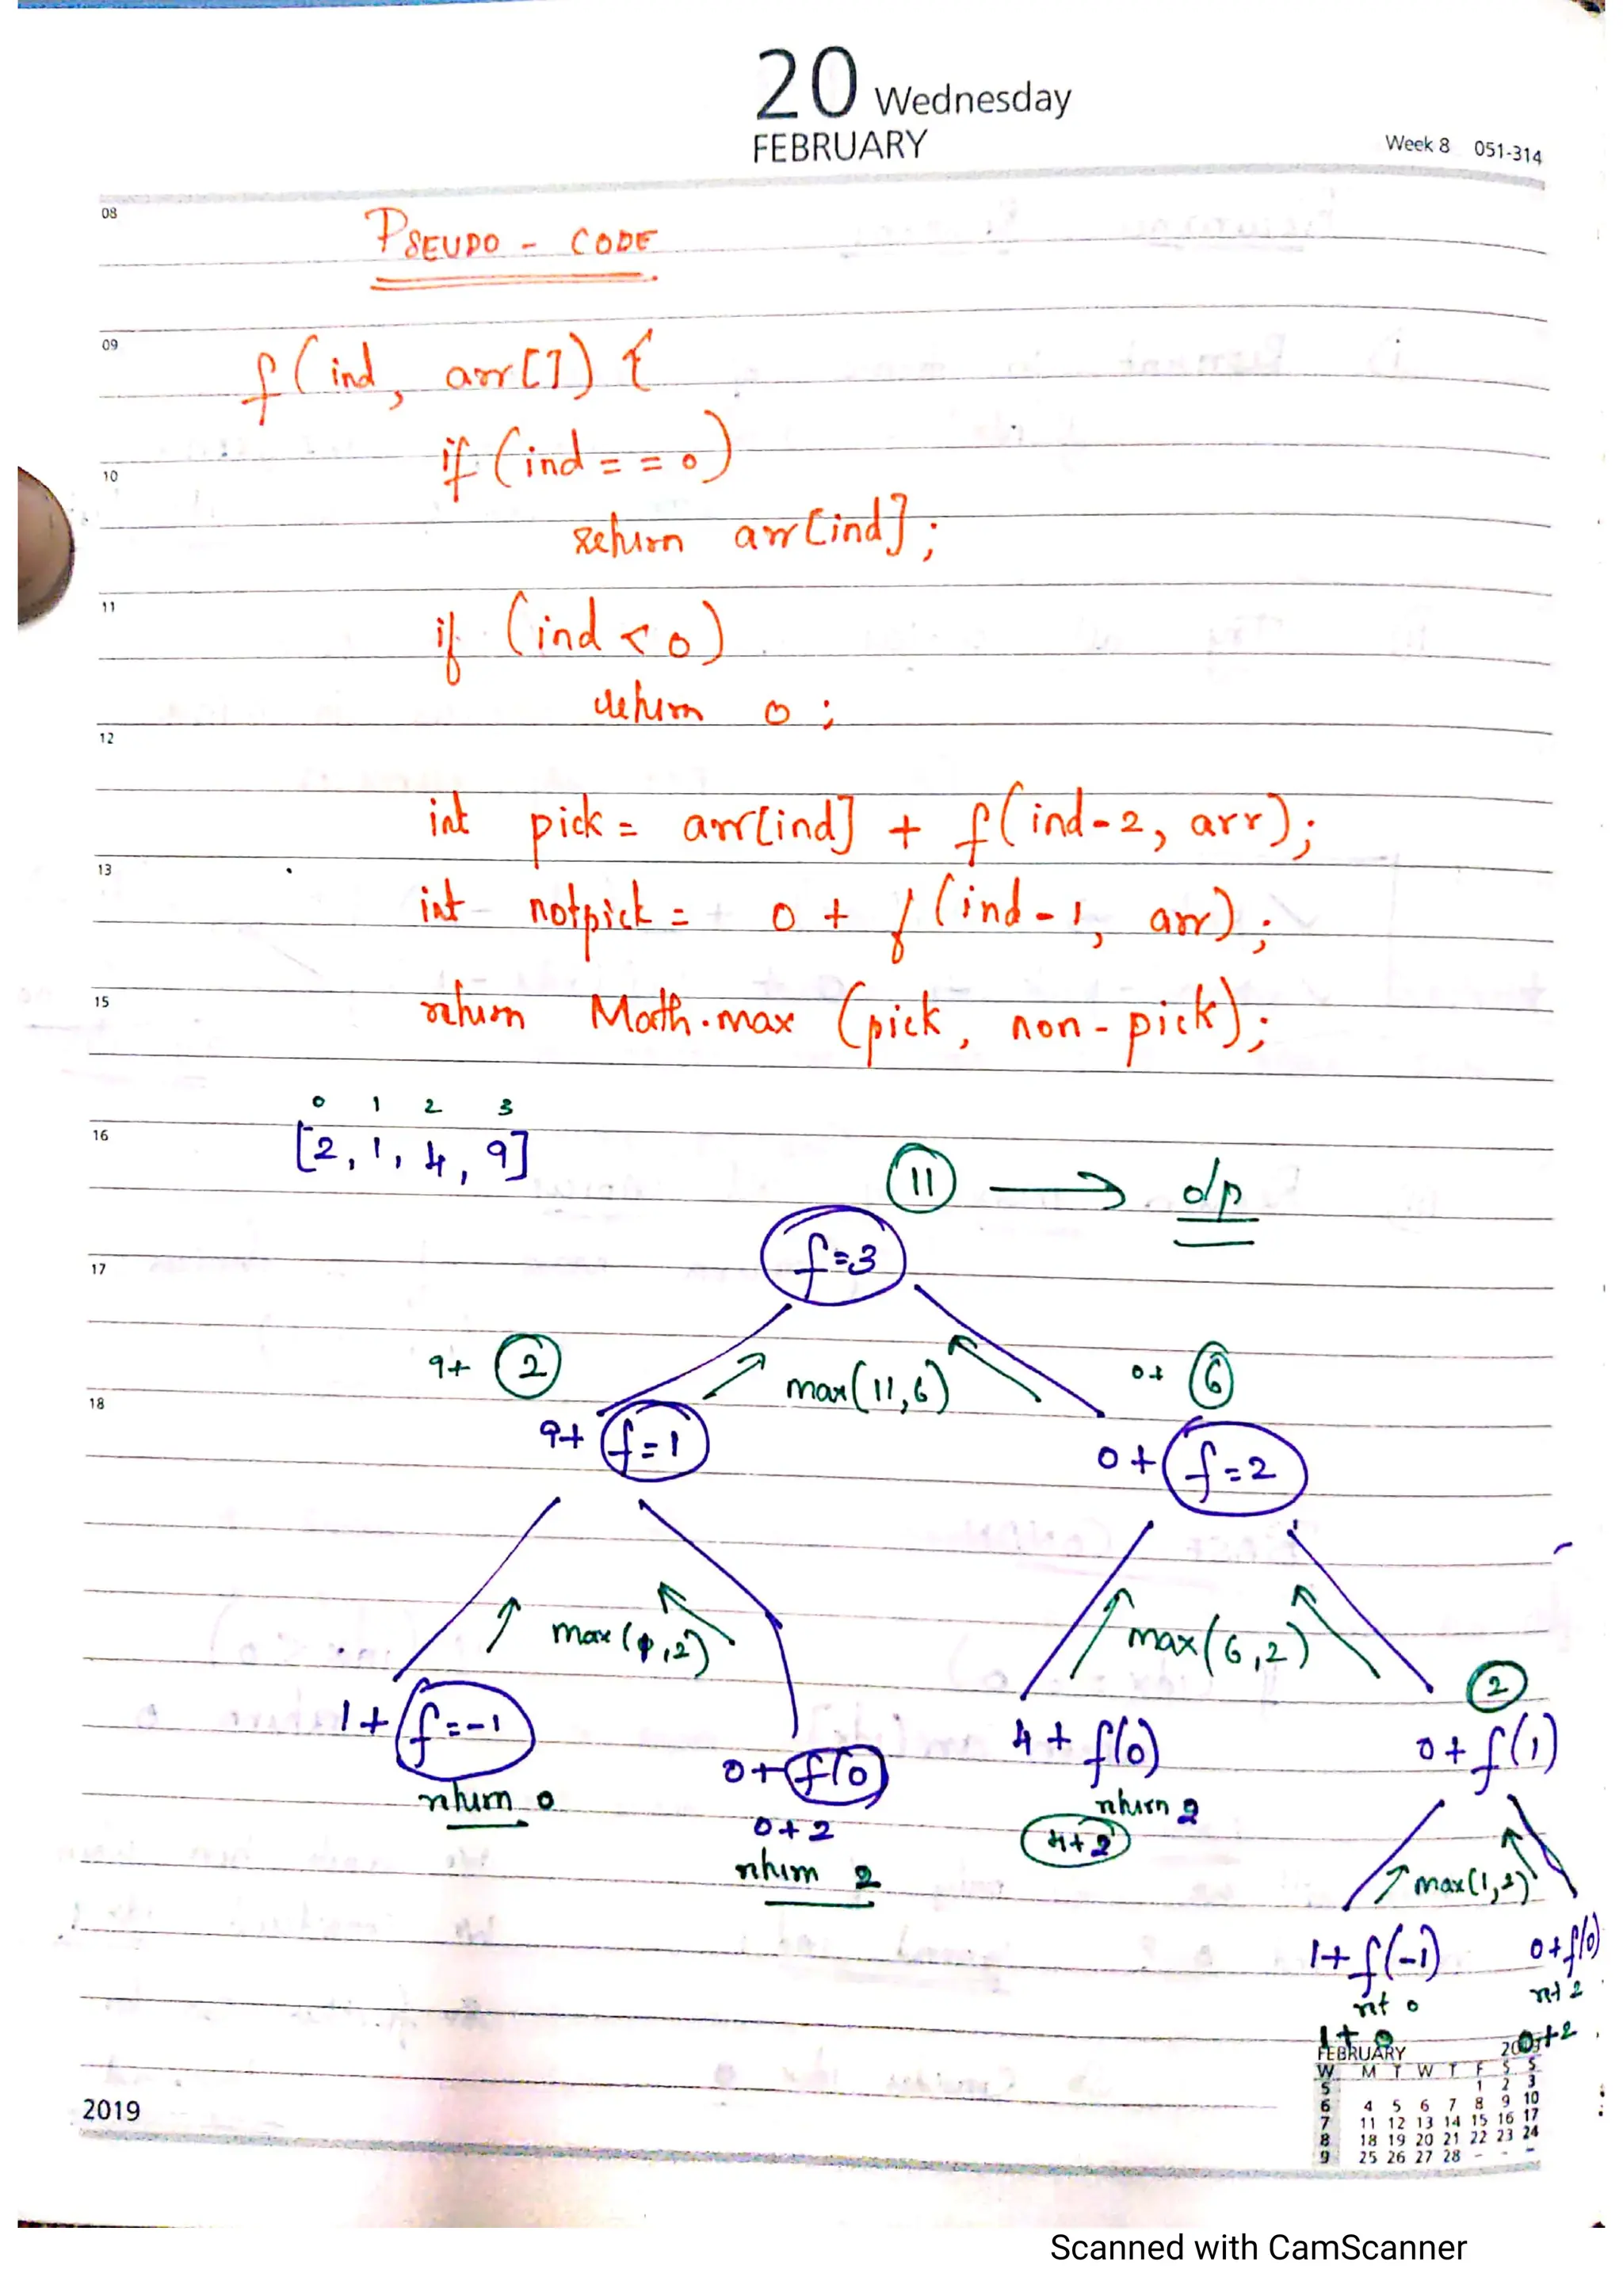 20 Wednesday
FEBRUARY
Week 8 051-314
08
PSEUDO - CODE
09
f(ind, arr[]) {
10
if (ind == 0)
return arr[ind];
11
if (ind < 0)
return 0;
12
int pick = arr[ind] + f(ind-2, arr);
13
int notpick = 0 + f(ind-1, arr);
15
return Math.max (pick, non-pick);
0 1 2 3
16
[2, 1, 4, 9]
11 → o/p
f=3
17
9+ 2
max(11,6)
0+ 6
18
9+ f=1
0+ f=2
max(1,2)
max(6,2)
2
1+ f=-1
0+ f(0)
4+ f(0)
0+ f(1)
return 0
0+2
return 2
return 2
4+2
max(1,2)
1+ f(-1)
0+f(0)
ret 0
ret 2
1+0
0+2
FEBRUARY
W M T W T F S S
5 1 2 3
6 4 5 6 7 8 9 10
7 11 12 13 14 15 16 17
8 18 19 20 21 22 23 24
9 25 26 27 28 - - -
2019
Scanned with CamScanner